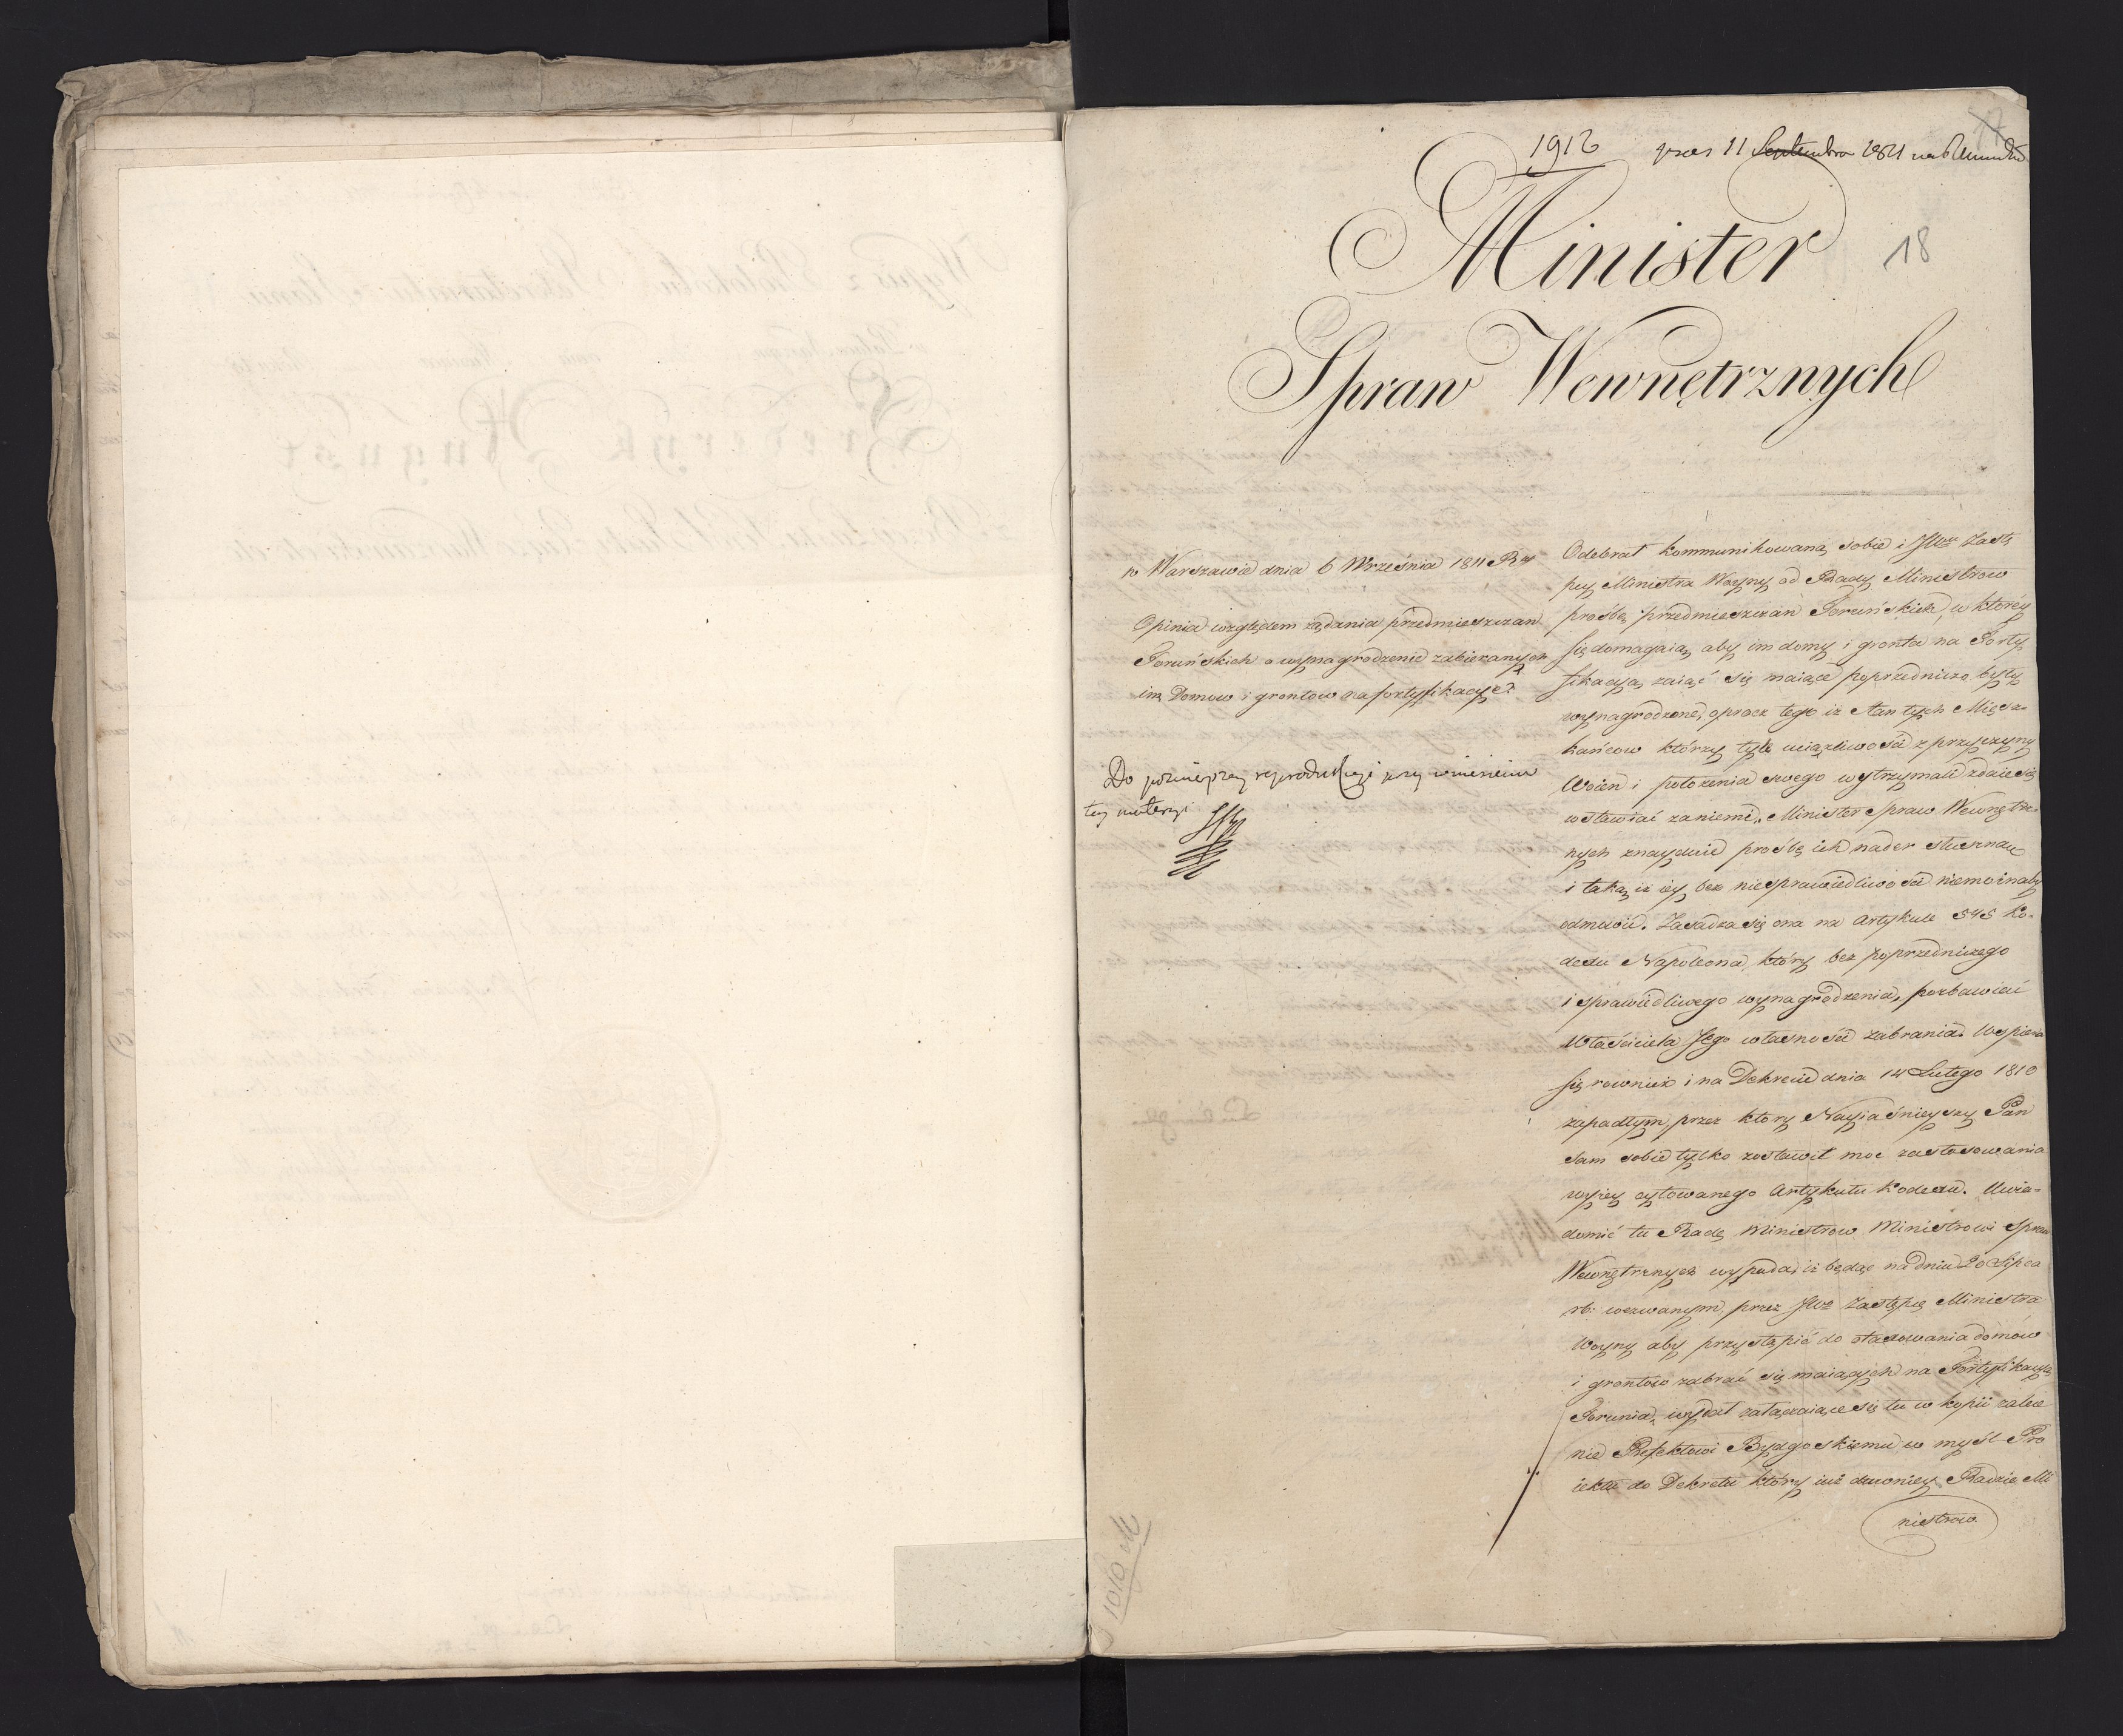 1912
11 Septembra 1811
17
18
Minister
Spraw Wewnętrznych
w Warszawie dnia 6 Września 1811 R
Opinia względem żądania przedmieszczan
Toruńskich o wynagrodzenie zabieranych
im Domow i grontow na fortyfikacye?
Do poźnieyszey reprodukcyi przy wniesieniu
tey materyi
Odebrał kommunikowaną sobie i JWu Zastę
pcy Ministra Woyny od Rady Ministrow
prośbę przedmieszczan Toruńskich, w którey
się domagaią, aby im domy i gronta na Forty
fikacyą zaiąć się maiące poprzedniczo były
wynagrodzone, oprocz tego iż stan tych Miesz-
kańcow którzy tyle uciążliwości z przyczyny
Woien i położenia swego wytrzymali zdaie się
wstawiać za niemi, Minister Spraw Wewnętrz-
nych znayduie prośbę ich nader słuszną
i taką iż iey bez niesprawiedliwości niemożnaby
odmówić. Zasadza się ona na Artykule 545 Ko-
dexu Napoleona, który bez poprzedniczego
i sprawiedliwego wynagrodzenia, pozbawiać
Właściciela Jego własności zabrania. Wspiera
się rownież i na Dekrecie dnia 14 Lutego 1810
zapadłym, przez ktory Nayiaśnieyszy Pan
sam sobie tylko zostawił moc zastosowania
wyżey cytowanego Artykułu Kodexu. Uwia-
domić tu Radę Ministrow Ministrowi Spraw
Wewnętrznych wypada, iż będąc na dniu 20 Lipca
rb: wezwanym przez JWo Zastępcę Ministra
Woyny aby przystąpić do otaxowania domów
i grontów zabrać się maiących na Fortyfikacyą
Torunia, wydał załączaiące się tu w kopii zalece
nie Prefektowi Bydgoskiemu w myśl Pro
iektu do Dekretu który iuż dawniey Radzie Mi
nistrow
1010 M